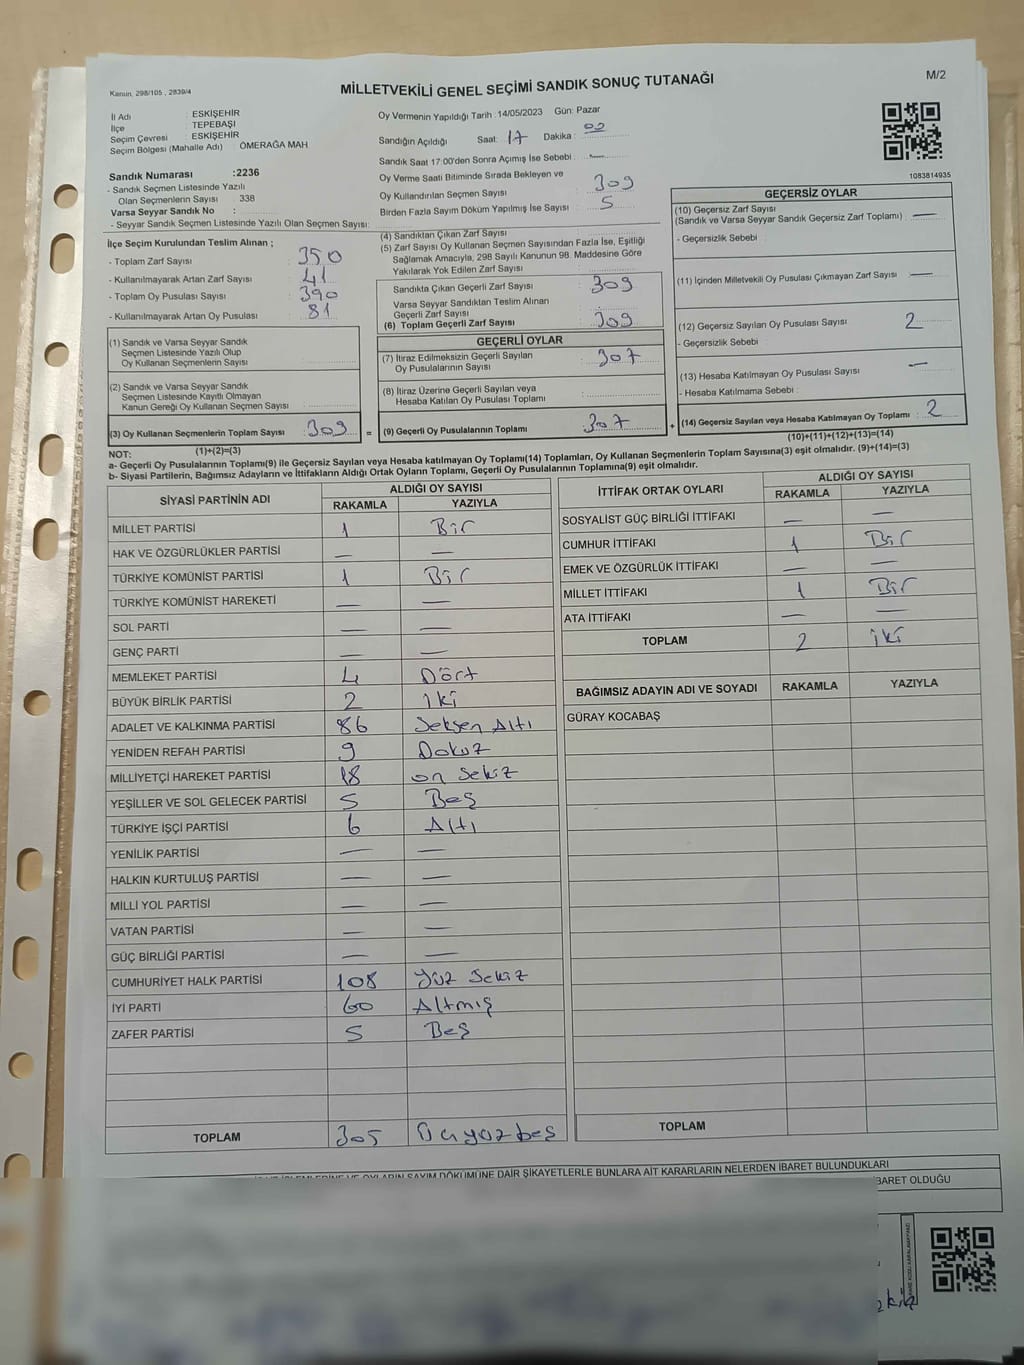 Kanun, 298/105 , 2839/4
MİLLETVEKİLİ GENEL SEÇİMİ SANDIK SONUÇ TUTANAĞI
M/2
İl Adı : ESKİŞEHİR
İlçe : TEPEBAŞI
Seçim Çevresi : ESKİŞEHİR
Seçim Bölgesi (Mahalle Adı) : ÖMERAĞA MAH
Sandık Numarası :2236
- Sandık Seçmen Listesinde Yazılı
Olan Seçmenlerin Sayısı : 338
Varsa Seyyar Sandık No :
- Seyyar Sandık Seçmen Listesinde Yazılı Olan Seçmen Sayısı:
Oy Vermenin Yapıldığı Tarih :14/05/2023 Gün: Pazar
Sandığın Açıldığı Saat: 17 Dakika : 02
Sandık Saat 17:00'den Sonra Açımış İse Sebebi : —
Oy Verme Saati Bitiminde Sırada Bekleyen ve
Oy Kullandırılan Seçmen Sayısı : 309
Birden Fazla Sayım Döküm Yapılmış İse Sayısı : 5
1083814935
İlçe Seçim Kurulundan Teslim Alınan ;
- Toplam Zarf Sayısı : 350
- Kullanılmayarak Artan Zarf Sayısı : 41
- Toplam Oy Pusulası Sayısı : 390
- Kullanılmayarak Artan Oy Pusulası : 81
(1) Sandık ve Varsa Seyyar Sandık
Seçmen Listesinde Yazılı Olup
Oy Kullanan Seçmenlerin Sayısı :
(2) Sandık ve Varsa Seyyar Sandık
Seçmen Listesinde Kayıtlı Olmayan
Kanun Gereği Oy Kullanan Seçmen Sayısı :
(3) Oy Kullanan Seçmenlerin Toplam Sayısı : 309
(1)+(2)=(3)
(4) Sandıktan Çıkan Zarf Sayısı :
(5) Zarf Sayısı Oy Kullanan Seçmen Sayısından Fazla İse, Eşitliği
Sağlamak Amacıyla, 298 Sayılı Kanunun 98. Maddesine Göre
Yakılarak Yok Edilen Zarf Sayısı :
Sandıkta Çıkan Geçerli Zarf Sayısı : 309
Varsa Seyyar Sandıktan Teslim Alınan
Geçerli Zarf Sayısı :
(6) Toplam Geçerli Zarf Sayısı : 309
GEÇERLİ OYLAR
(7) İtiraz Edilmeksizin Geçerli Sayılan
Oy Pusulalarının Sayısı : 307
(8) İtiraz Üzerine Geçerli Sayılan veya
Hesaba Katılan Oy Pusulası Toplamı :
= (9) Geçerli Oy Pusulalarının Toplamı : 307
GEÇERSİZ OYLAR
(10) Geçersiz Zarf Sayısı
(Sandık ve Varsa Seyyar Sandık Geçersiz Zarf Toplamı) : —
- Geçersizlik Sebebi :
(11) İçinden Milletvekili Oy Pusulası Çıkmayan Zarf Sayısı : —
(12) Geçersiz Sayılan Oy Pusulası Sayısı : 2
- Geçersizlik Sebebi :
(13) Hesaba Katılmayan Oy Pusulası Sayısı : —
- Hesaba Katılmama Sebebi :
+ (14) Geçersiz Sayılan veya Hesaba Katılmayan Oy Toplamı : 2
(10)+(11)+(12)+(13)=(14)
NOT:
a- Geçerli Oy Pusulalarının Toplamı(9) ile Geçersiz Sayılan veya Hesaba katılmayan Oy Toplamı(14) Toplamları, Oy Kullanan Seçmenlerin Toplam Sayısına(3) eşit olmalıdır. (9)+(14)=(3)
b- Siyasi Partilerin, Bağımsız Adayların ve İttifakların Aldığı Ortak Oyların Toplamı, Geçerli Oy Pusulalarının Toplamına(9) eşit olmalıdır.
SİYASİ PARTİNİN ADI
ALDIĞI OY SAYISI
RAKAMLA YAZIYLA
MİLLET PARTİSİ 1 Bir
HAK VE ÖZGÜRLÜKLER PARTİSİ — —
TÜRKİYE KOMÜNİST PARTİSİ 1 Bir
TÜRKİYE KOMÜNİST HAREKETİ — —
SOL PARTİ — —
GENÇ PARTİ — —
MEMLEKET PARTİSİ 4 Dört
BÜYÜK BİRLİK PARTİSİ 2 İki
ADALET VE KALKINMA PARTİSİ 86 Seksen Altı
YENİDEN REFAH PARTİSİ 9 Dokuz
MİLLİYETÇİ HAREKET PARTİSİ 18 on Sekiz
YEŞİLLER VE SOL GELECEK PARTİSİ 5 Beş
TÜRKİYE İŞÇİ PARTİSİ 6 Altı
YENİLİK PARTİSİ — —
HALKIN KURTULUŞ PARTİSİ — —
MİLLİ YOL PARTİSİ — —
VATAN PARTİSİ — —
GÜÇ BİRLİĞİ PARTİSİ — —
CUMHURİYET HALK PARTİSİ 108 Yüz Sekiz
İYİ PARTİ 60 Altmış
ZAFER PARTİSİ 5 Beş
TOPLAM 305 Üçyüzbeş
İTTİFAK ORTAK OYLARI
ALDIĞI OY SAYISI
RAKAMLA YAZIYLA
SOSYALİST GÜÇ BİRLİĞİ İTTİFAKI — —
CUMHUR İTTİFAKI 1 Bir
EMEK VE ÖZGÜRLÜK İTTİFAKI — —
MİLLET İTTİFAKI 1 Bir
ATA İTTİFAKI — —
TOPLAM 2 iki
BAĞIMSIZ ADAYIN ADI VE SOYADI RAKAMLA YAZIYLA
GÜRAY KOCABAŞ
TOPLAM
OYLARIN SAYIM DÖKÜMÜNE DAİR ŞİKAYETLERLE BUNLARA AİT KARARLARIN NELERDEN İBARET BULUNDUKLARI
İBARET OLDUĞU